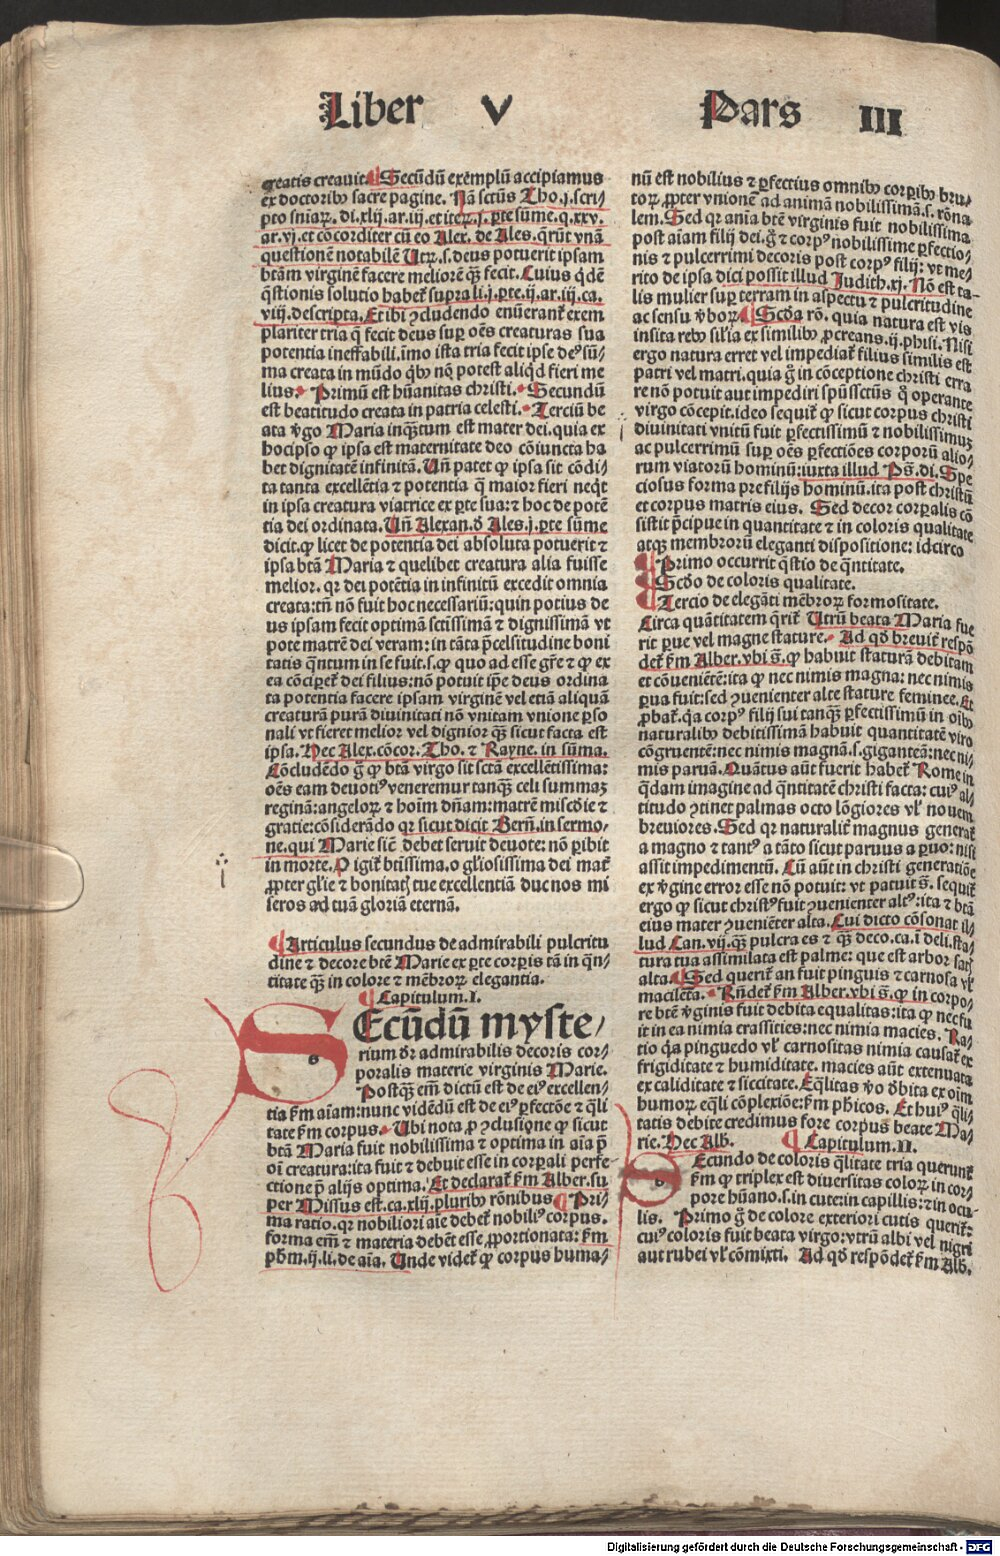 Liber V Pars III
creatis creauit. ¶ Secũdũ exemplũ accipiamus
ex doctoribꝰ sacre pagine. Nã sctũs Tho. j. scri-
pto sniaꝝ. di. xlij. ar. iij. et iteꝝ. j. ꝑte sũme. q. xxv.
ar. vj. et cõcorditer cũ eo Alex. de Ales. q̃rũt vnã
questionẽ notabilẽ Utꝝ. s. deus potuerit ipsam
btãm virginẽ facere meliorẽ q̃ꝫ fecit. Cuius q̃dẽ
q̃stionis solutio habet̃ supra li. j. ꝑte. ij. ar. iij. ca.
viij. descripta. Et ibi ꝯcludendo enũerant̃ exem
plariter tria q̃ fecit deus suꝑ oẽs creaturas sua
potentia ineffabili. imo ista tria fecit ipse deꝰ sũ-
ma creata in mũdo q̃bꝰ nõ potest aliqd fieri me
lius. Primũ est hũanitas christi. Secundũ
est beatitudo creata in patria celesti. Terciũ be
ata v̓go Maria inq̃ꝫtum est mater dei. quia ex
hocipso ꝙ ipsa est maternitate deo cõiuncta ha
bet dignitatẽ infinitã. Uñ patet ꝙ ipsa sit cõdi-
ta tanta excellẽtia ⁊ potentia q̃ maior fieri neq̃t
in ipsa creatura viatrice ex ꝑte sua: ⁊ hoc de potẽ
tia dei ordinata. Uñ Alexan. d̓ Ales. j. ꝑte sũme
dicit. ꝙ licet de potentia dei absoluta potuerit ⁊
ipsa btã Maria ⁊ quelibet creatura alia fuisse
melior. qꝛ dei potẽtia in infinitũ excedit omnia
creata: tñ nõ fuit hoc necessariũ: quin potius de
us ipsam fecit optimã sctissimã ⁊ dignissimã vt
pote matrẽ dei veram: in tãta p̃celsitudine boni
tatis q̃ntum in se fuit. s. ꝙ quo ad esse gr̃e ⁊ ꝙ ex
ea cõciꝑet̃ dei filius: nõ potuit ip̃e deus ordina
ta potentia facere ipsam virginẽ vel etiã aliquã
creaturã purã diuinitati nõ vnitam vnione ꝑso
nali vt fieret melior vel dignior q̃ꝫ sicut facta est
ipsa. Hec Alex. cõcor. Tho. ⁊ Rayne. in sũma.
Cõcludẽdo g̃ ꝙ btã virgo sit sctã excellẽtissima:
oẽs eam deuotiꝰ veneremur tanq̃ꝫ celi summaꝫ
reginã: angeloꝝ ⁊ hoim̃ dñam: matrẽ miscd̓ie ⁊
gratie: cõsiderãdo qꝛ sicut dicit Berñ. in sermo-
ne. qui Marie siẽ debet seruit deuote: nõ ꝑibit
in morte. O igit̃ btissima. o gl̓iosissima dei mat̃
ꝓpter gl̓ie ⁊ bonitatꝭ tue excellentiã duc nos mi
seros ad tuã gloriã eternã.
¶ Articulus secundus de admirabili pulcritu
dine ⁊ decore btẽ Marie ex ꝑte corꝑis tã in q̃n-
titate q̃ꝫ in colore ⁊ mẽbroꝝ elegantia.
¶ Capitulum. I.
SEcũdũ myste/
rium d̓r admirabilis decoris cor/
poralis materie virginis Marie.
Postq̃ꝫ em̃ dictũ est de eiꝰ excellen/
tia ẜm aĩam: nunc vidẽdũ est de eiꝰ ꝑfectõe ⁊ q̃li
tate ẜm corpus. Ubi nota ꝓ ꝯclusiõne ꝙ sicut
btã Maria fuit nobilissima ⁊ optima in aĩa p̃
oĩ creatura: ita fuit ⁊ debuit esse in corꝑali ꝑfe-
ctione p̃ alijs optima. Et declarat̃ ẜm Alber. su
per Missus est. ca. xlij. pluribꝰ rõnibus ¶ Pri-
ma ratio. qꝛ nobiliori aĩe debet̃ nobiliꝰ corpus.
forma em̃ ⁊ materia debẽt esse ꝓportionata: ẜm
pħm. ij. li. de aĩa. Unde videt̃ ꝙ corpus huma-
nũ est nobilius ⁊ ꝑfectius omnibꝰ corꝑibꝰ bru-
toꝝ. ꝓpter vnionẽ ad animã nobilissimã. s. rõna
lem. Sed qꝛ aĩa btẽ virginis fuit nobilissima
post aĩam filij dei. g̃ ⁊ corpꝰ nobilissime ꝑfectio-
nis ⁊ pulcerrimi decoris post corpꝰ filij: vt me-
rito de ipsa dici possit illud Judith. xj. Nõ est ta-
lis mulier suꝑ terram in aspectu ⁊ pulcritudine
ac sensu v̓boꝝ. ¶ Scd̓a rõ. quia natura est vis
insita rebꝰ sil̓ia ex similibꝰ ꝓcreans. ij. phisi. Nisi
ergo natura erret vel impediat̃ filius similis est
patri vel matri. quia g̃ in cõceptione christi erra
re nõ potuit aut impediri sp̃ussctũs q̃ operante
virgo cõcepit. ideo sequit̃ ꝙ sicut corpus christi
diuinitati vnitũ fuit ꝑfectissimũ ⁊ nobilissimuꝫ
ac pulcerrimũ suꝑ oẽs ꝑfectiões corporũ alio-
rum viatorũ hominũ: iuxta illud Pš. di. Spe
ciosus forma pre filijs hominũ. ita post christũ
et corpus matris eius. Sed decor corꝑalis cõ
sistit p̃cipue in quantitate ⁊ in coloris qualitate
atqꝫ membrorũ eleganti dispositione: idcirco
¶ Primo occurrit q̃stio de q̃ntitate.
¶ Scd̓o de coloris qualitate.
¶ Tercio de elegãti mẽbroꝝ formositate.
Circa quãtitatem q̃rit̃ Utrũ beata Maria fue
rit ꝑue vel magne stature. Ad qd̓ breuit̃ respõ
det̃ ẜm Alber. vbi s̃. ꝙ habuit staturã debitam
et cõueniẽtẽ: ita ꝙ nec nimis magna: nec nimis
ꝑua fuit: sed ꝯuenienter alte stature feminee. Et
ꝓbat̃. q̃a corpꝰ filij sui tanq̃ꝫ ꝑfectissimũ in oĩbꝰ
naturalibꝰ debitissimã habuit quantitatẽ viro
cõgruentẽ: nec nimis magnã. s. giganteã: nec ni-
mis paruã. Quãtus aũt fuerit habet̃ Rome in
q̃dam imagine ad q̃ntitatẽ christi facta: cuiꝰ al-
titudo ꝯtinet palmas octo lõgiores vl̓ nouem
breuiores. Sed qꝛ naturalit̃ magnus generat̃
a magno ⁊ tantꝰ a tãto sicut paruus a ꝑuo: nisi
assit impedimentũ. Cũ aũt in christi generatiõe
ex v̓gine error esse nõ potuit: vt patuit s̃. sequit̃
ergo ꝙ sicut christꝰ fuit ꝯuenienter altꝰ: ita ⁊ btã
eius mater ꝯueniẽter alta. Cui dicto cõsonat il-
lud Can. vij. q̃ꝫ pulcra es ⁊ q̃ꝫ deco. ca. ĩ deli. sta-
tura tua assimilata est palme: que est arbor satꝭ
alta. ¶ Sed querit̃ an fuit pinguis ⁊ carnosa vl̓
macilẽta. Rñdet̃ ẜm Alber. vbi s̃. ꝙ in corpo-
re btẽ v̓ginis fuit debita equalitas: ita ꝙ nec fu
it in ea nimia crassities: nec nimia macies. Ra-
tio q̃a pinguedo vl̓ carnositas nimia causat̃ ex
frigiditate ⁊ humiditate. macies aũt extenuata
ex caliditate ⁊ siccitate. Eq̃litas v̓o d̓bita ex oĩm
humoꝝ eq̃li cõplexiõe: ẜm pħicos. Et huiꝰ q̃li-
tatis debite credimus fore corpus beate Ma-
rie. Hec Alb̓. ¶ Capitulum. II.
SEcundo de coloris q̃litate tria querunt̃
ẜm ꝙ triplex est diuersitas coloꝝ in cor-
pore hũano. s. in cute: in capillis: ⁊ in ocu-
lis. Primo g̃ de colore exteriori cutis querit̃:
cuiꝰ coloris fuit beata virgo: vtrũ albi vel nigri
aut rubei vl̓ cõmixti. Ad qd̓ respõdet̃ ẜm Alb̓.
Digitalisierung gefördert durch die Deutsche Forschungsgemeinschaft - DFG